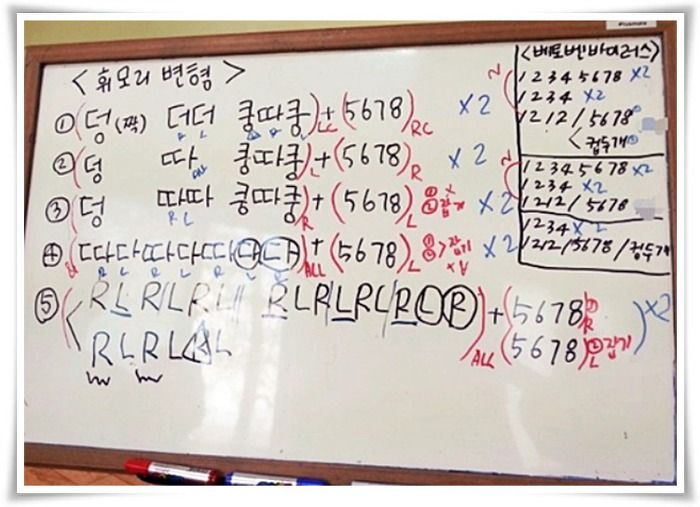 <휘모리 변형>
① (덩 (짝) 더더 쿵따쿵) + (5678) RC X2
② (덩 따 쿵따쿵)L + (5678)R X2
③ (덩 따따 쿵따쿵)R + (5678)L ② 잡기 X2
R L
④ (따다따다따따다)ALL + (5678)L > 잡기 X2
⑤ R L R L R L R L R L R L R L R ALL + (5678) ① R X2
R L R L R L (5678) ② 잡기 L
<베토벤바이러스>
1 2 3 4 5 6 7 8 X2
1 2 3 4 X2
1 2 1 2 / 5 6 7 8
< 컵두개
1 2 3 4 5 6 7 8 X2
1 2 3 4 X2
1 2 1 2 / 5 6 7 8
1 2 3 4 X2
1 2 1 2 / 5 6 7 8 / 컵두개